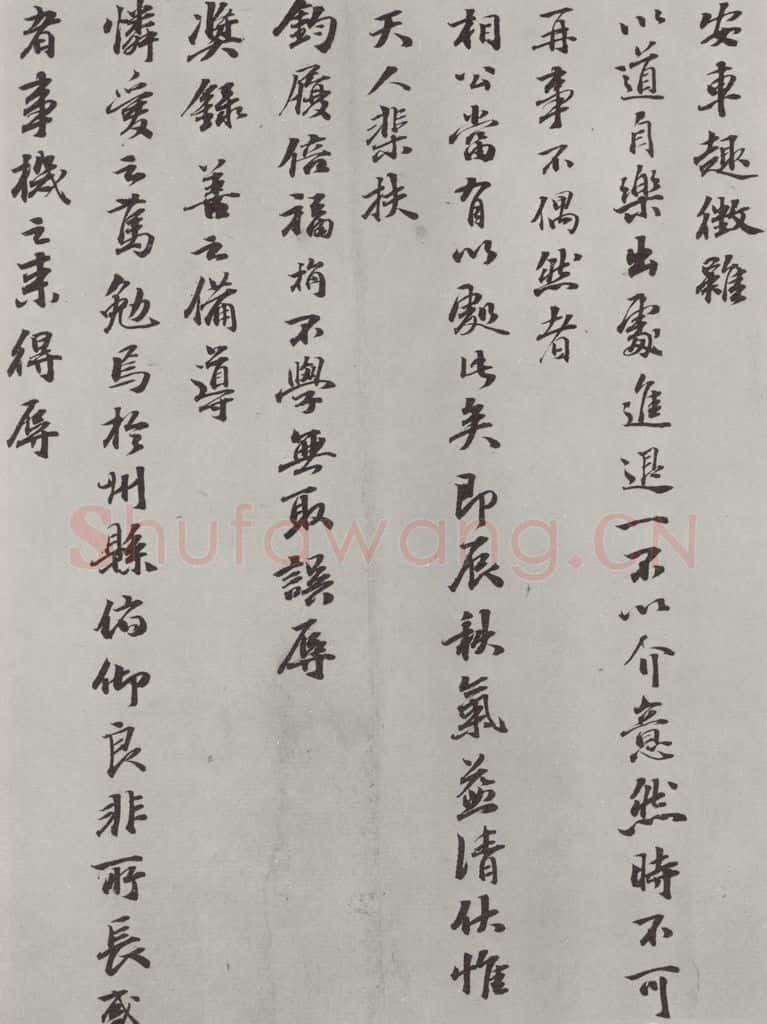 安車趣徵雖
以道自樂出處進退一不以介意然時不可
再事不偶然者
相公當有以處此矣即辰秋氣益清伏惟
天人棐扶
鈞履倍福栴不學無取誤辱
奬錄善之備導
憐愛之篤勉焉於州縣俯仰良非所長或
者事機之來得辱
Shufawang.CN